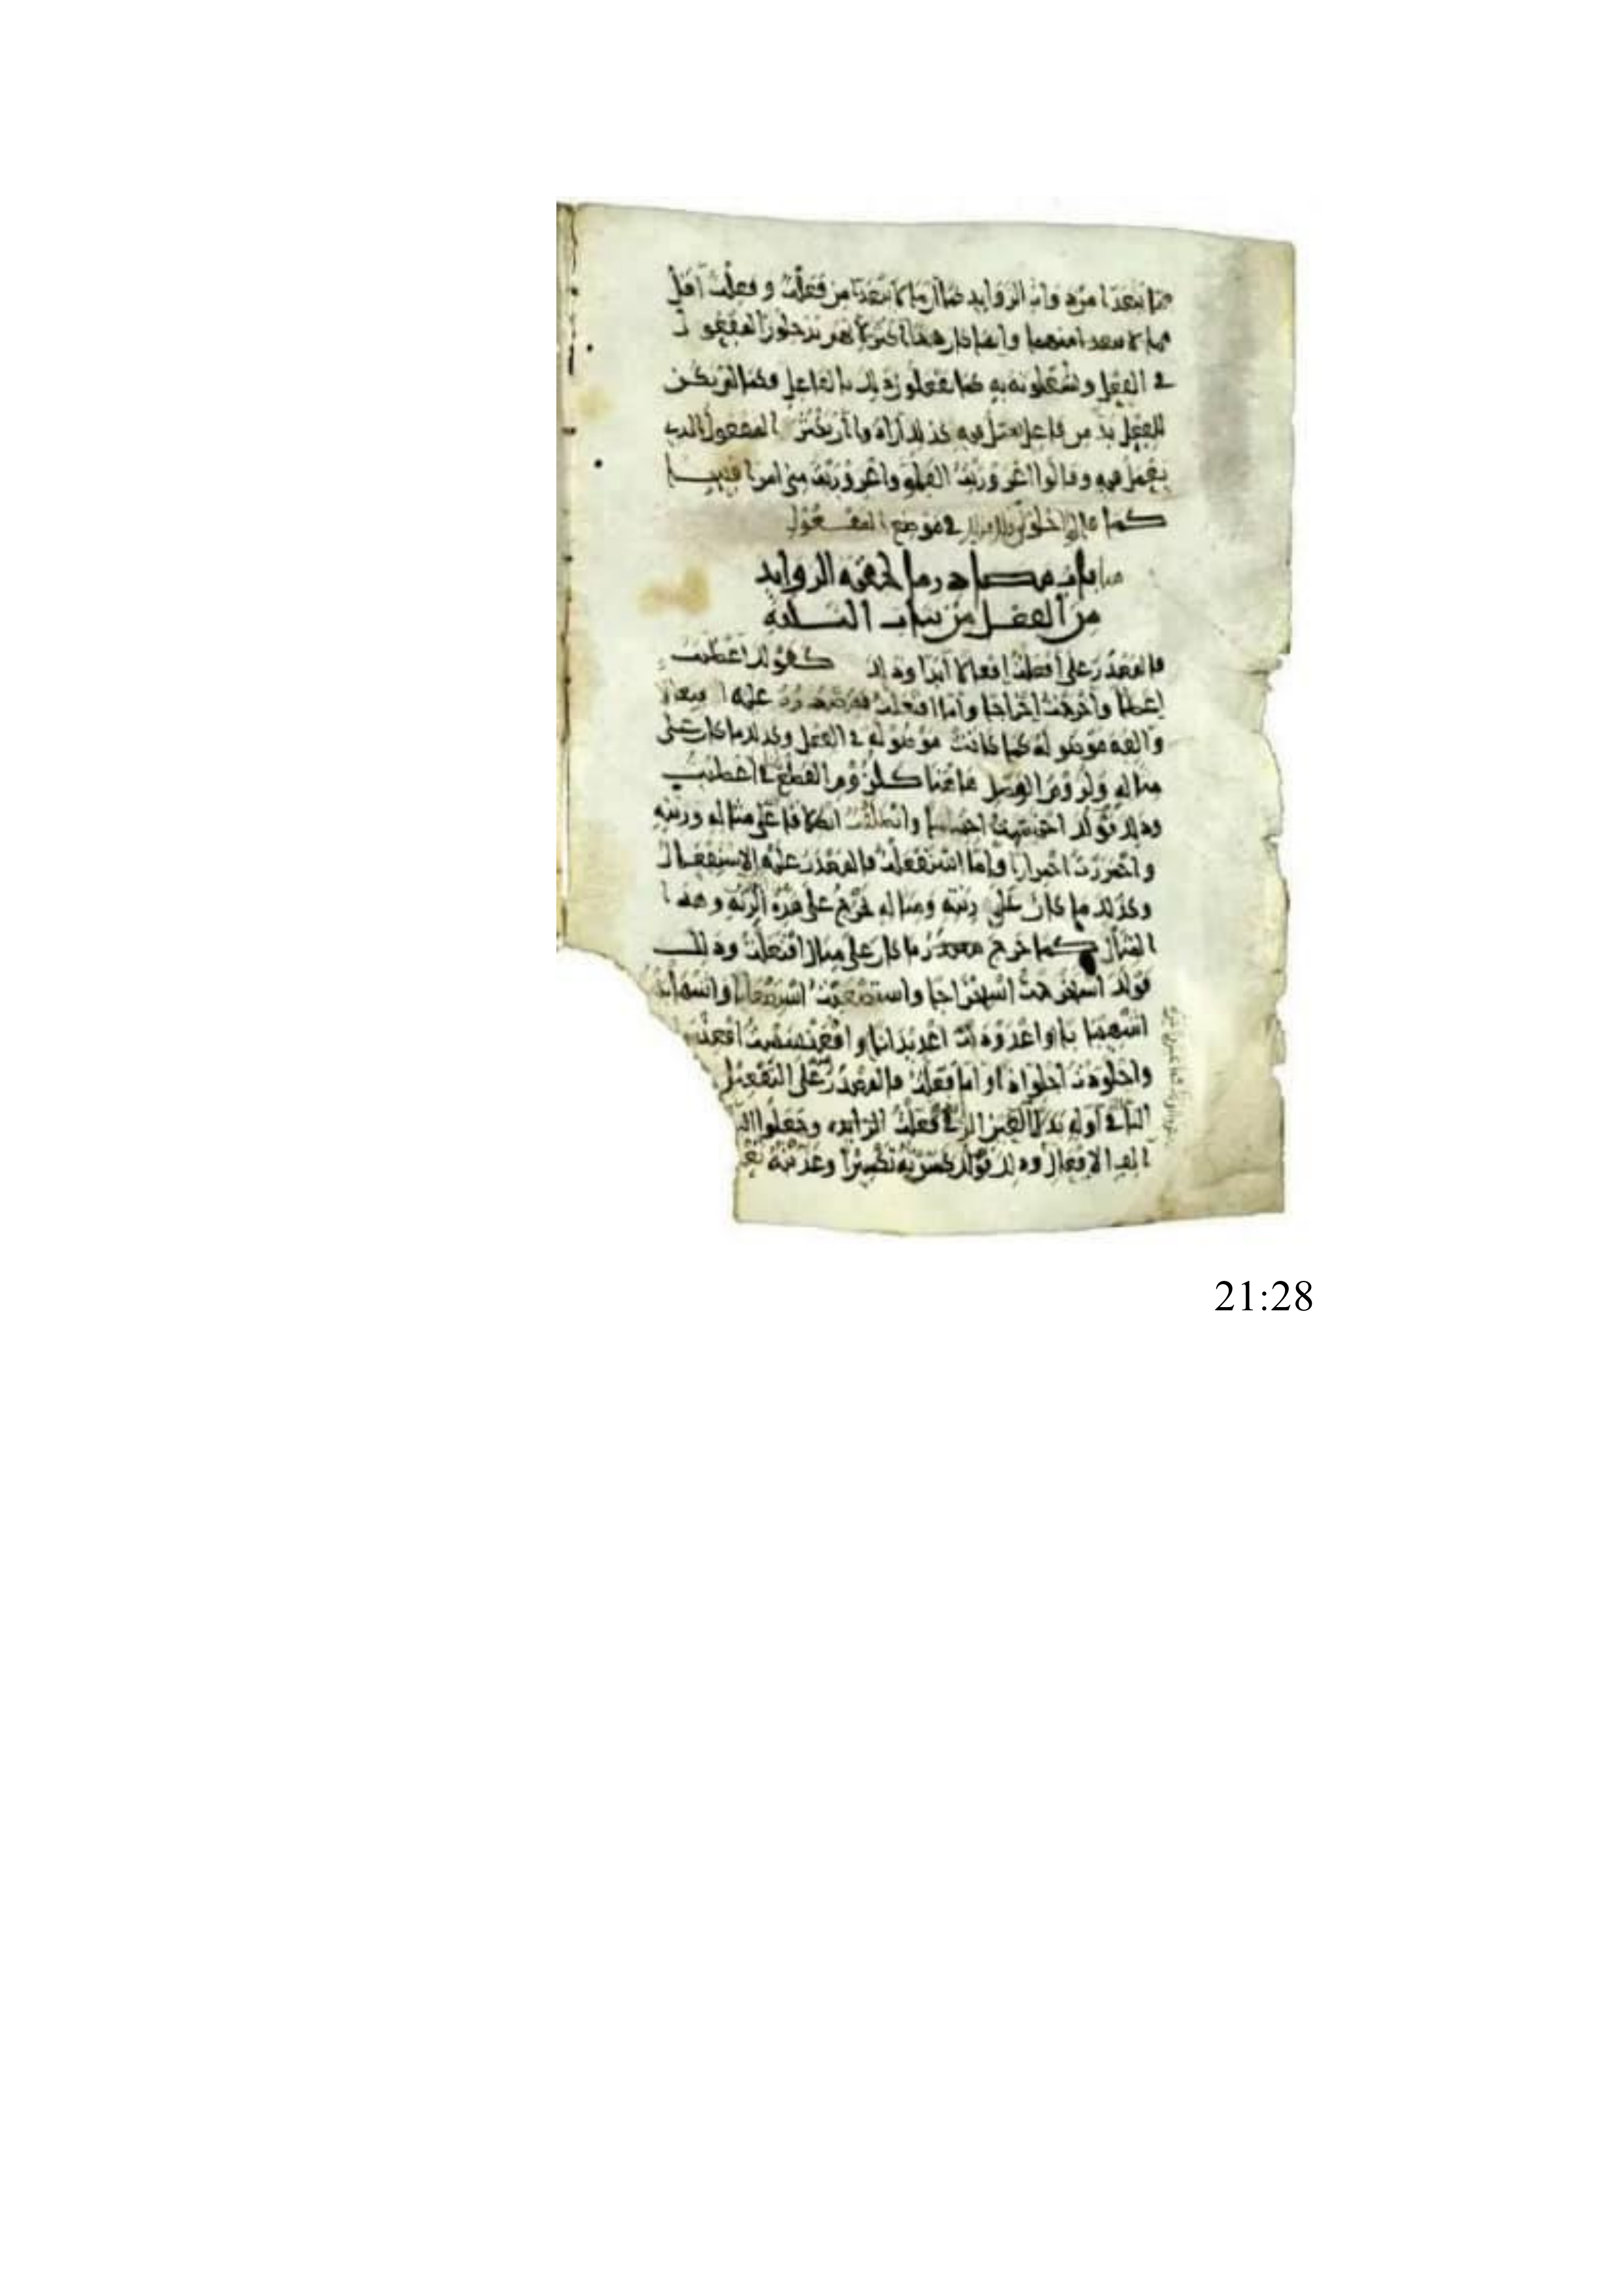 مما يتعدا من ذوات الزوايد كما ان ما لا يتعدا من فعلت وفعلت اقل
مما لا يتعدا منهما وانما كان هذا اكثر لانهم يدخلون المفعول
في الفعل ويشغلونه به كما يفعلون ذلك بالفاعل فكما لم يكن
للفعل بد من فاعل يعمل فيه كذلك ارادوا ان يكثر المفعول الذي
يعمل فيه وقالوا اعروريت الفلو واعروريت مني امرا قبيحا
كما قالوا احلولى ذلك في موضع المفعول
هذا باب مصادر ما لحقته الزوايد
من الفعل من بنات الثلثه
فالمصدر على افعلت افعالا ابدا وذلك كقولك اعطيت
اعطا واخرجت اخراجا واما افتعلت فمصدره عليه افتعالا
والفه موصوله كما كانت موصوله في الفعل وكذلك ما كان على
مثاله ولزوم الوصل هاهنا كلزوم القطع في اعطيت
وذلك قولك احتبست احتباسا وانطلقت انطلاقا على مثاله وزنته
واحمررت احمرارا واما استفعلت فالمصدر عليه الاستفعال
وكذلك ما كان على زنته ومثاله خرج على هذه الزنه وهذا
المثال كما خرج مصدر ما كان على مثال افتعلت وذلك
قولك استخرجت استخراجا واستصعبت استصعابا واشهاببت
اشهيبابا واغدودنت اغديدانا واقعنسست اقعنسا
واجلوذت اجلواذا واما فعلت فالمصدر على التفعيل
التا في اوله بدلا من العين الزايده في فعلت وجعلوا اليا
الف الافعال وذلك قولك كسرته تكسيرا وعذبته تعذ
21:28